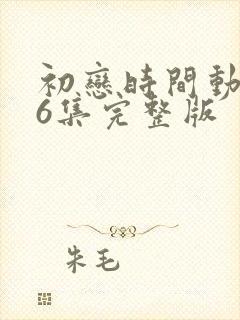 初戀時間動
6集完整版
朱毛